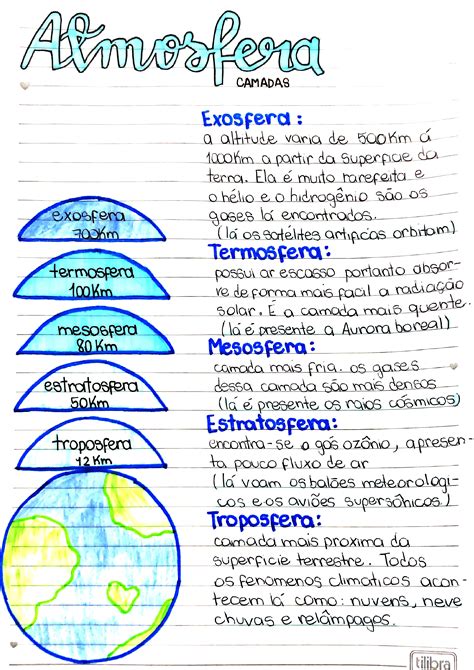 Atmosfera
CAMADAS
Exosfera:
a altitude varia de 500Km á
1000Km a partir da superficie da
terra. Ela é muito rarefeita e
o hélio e o hidrogênio são os
gases lá encontrados.
(lá os satélites artificias orbitam)
Termosfera:
possui ar escasso portanto absor-
ve de forma mais facil a radiação
solar. É a camada mais quente.
(lá é presente a Aurora boreal)
Mesosfera:
camada mais fria. os gases
dessa camada são mais densos
(lá é presente os raios cósmicos)
Estratosfera:
encontra-se o gás ozônio, apresen-
ta pouco fluxo de ar
(lá voam os balões meteorologi-
cos e os aviões supersônicos.)
Troposfera:
camada mais proxima da
superficie terrestre. Todos
os fenomenos climaticos acon-
tecem lá como: nuvens, neve
chuvas e relâmpagos.
exosfera
700Km
termosfera
100Km
mesosfera
80Km
estratosfera
50Km
troposfera
12Km
tilibra